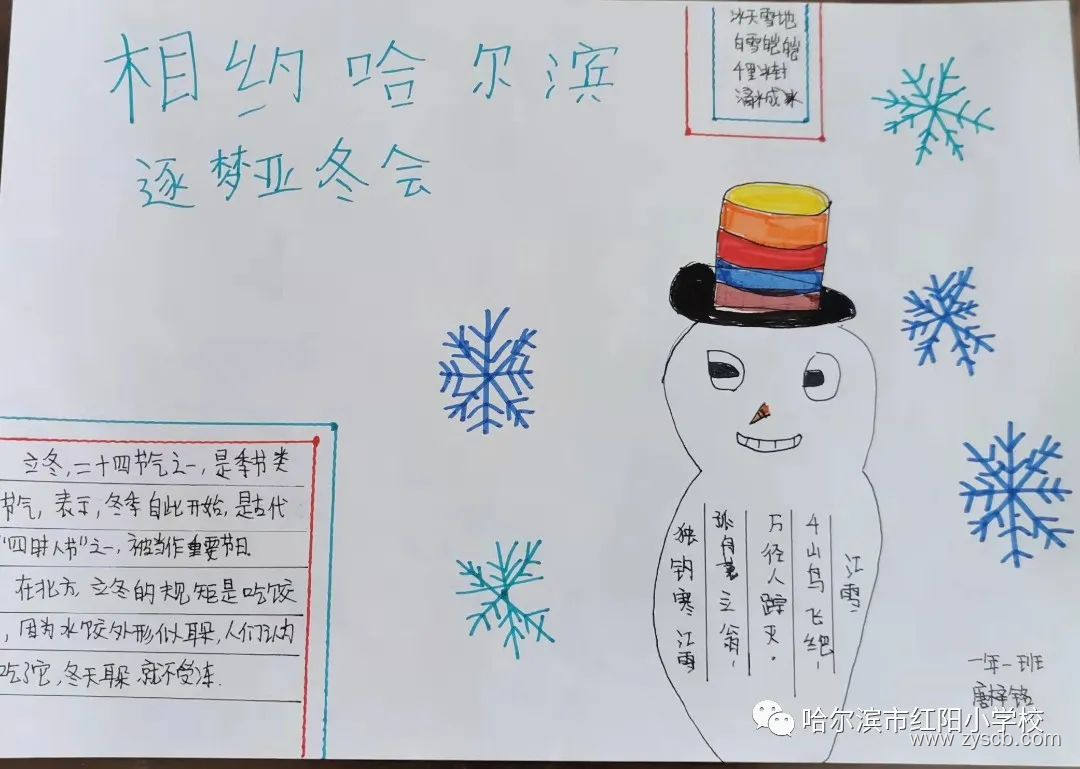 相约哈尔滨
逐梦亚冬会
冰天雪地
白雪皑皑
千里冰封
滴水成冰
立冬,二十四节气之一,是季节类
节气,表示,冬季自此开始,是古代
"四时八节"之一,被当作重要节日
在北方,立冬的规矩是吃饺
,因为水饺外形似耳朵,人们认为
吃了它,冬天耳朵就不受冻.
江雪
千山鸟飞绝,
万径人踪灭。
孤舟蓑立翁,
独钓寒江雪
一年一班
唐梓铭
哈尔滨市红阳小学校
www.zyscb.com